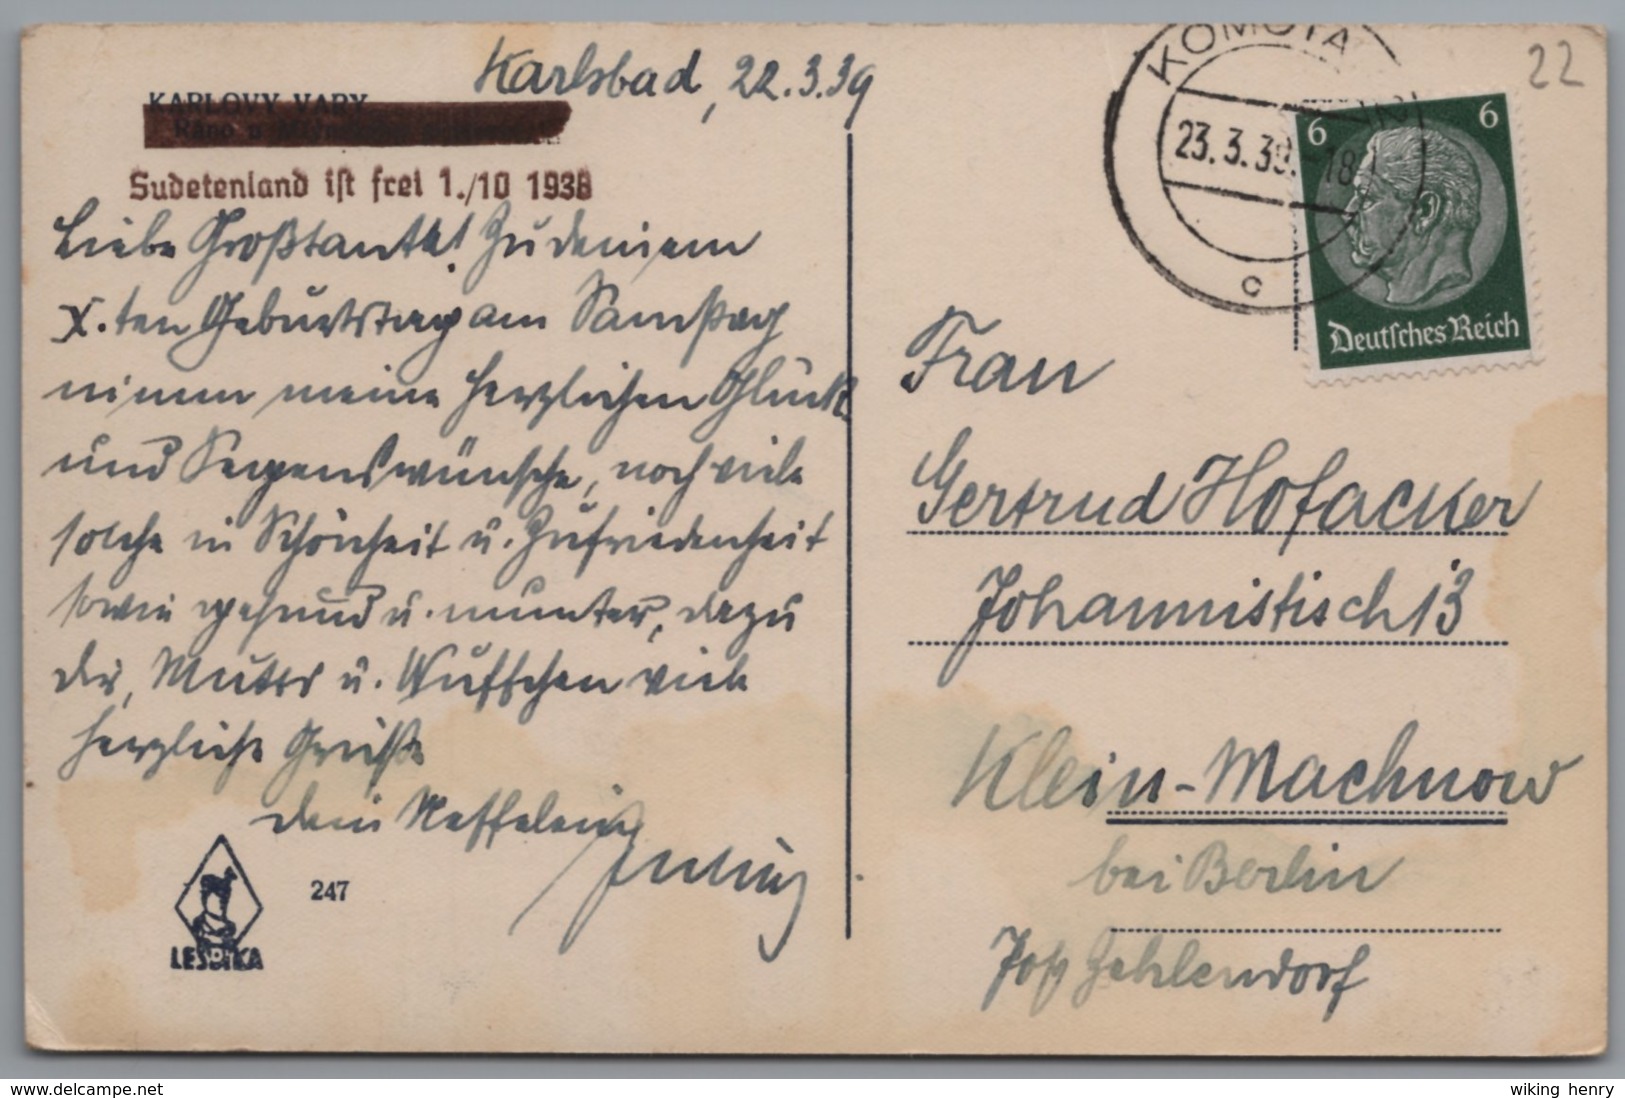 Karlsbad, 22.3.39
KARLOVY VARY
Ráno u
Sudetenland ist frei 1./10 1938
Liebe Großtante! Zu deinem
X.ten Geburtstag am Samstag
nimm meine herzlichen Glück-
und Segenswünsche, noch viele
solche in Schönheit u. Zufriedenheit
sowie gesund u. munter, dazu
dir, Mutti u. viele
herzliche Grüße
dein Neffe
LESDIKA
247
KOMOTA
23.3.39.-18
c
22
6 6
Deutsches Reich
Frau
Gertrud Hofacker
Johannistisch 13
Klein-Machnow
bei Berlin
Post Zehlendorf
delcampe.net
wiking henry